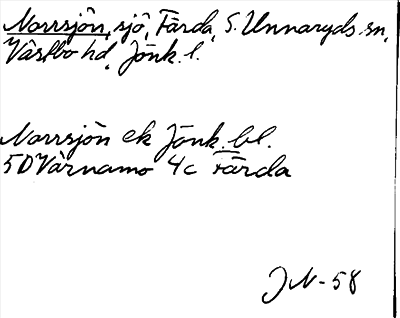 Norrsjön, sjö, Färda, S. Unnaryds sn,
Västbo hd, Jönk. l.
Norrsjön ek Jönk. bl.
5D Värnamo 4c Färda
JN-58